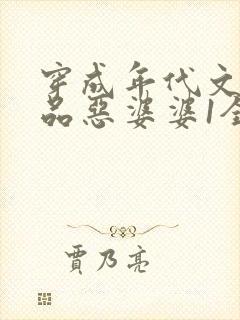 穿成年代文
品恶婆婆1全
贾乃亮